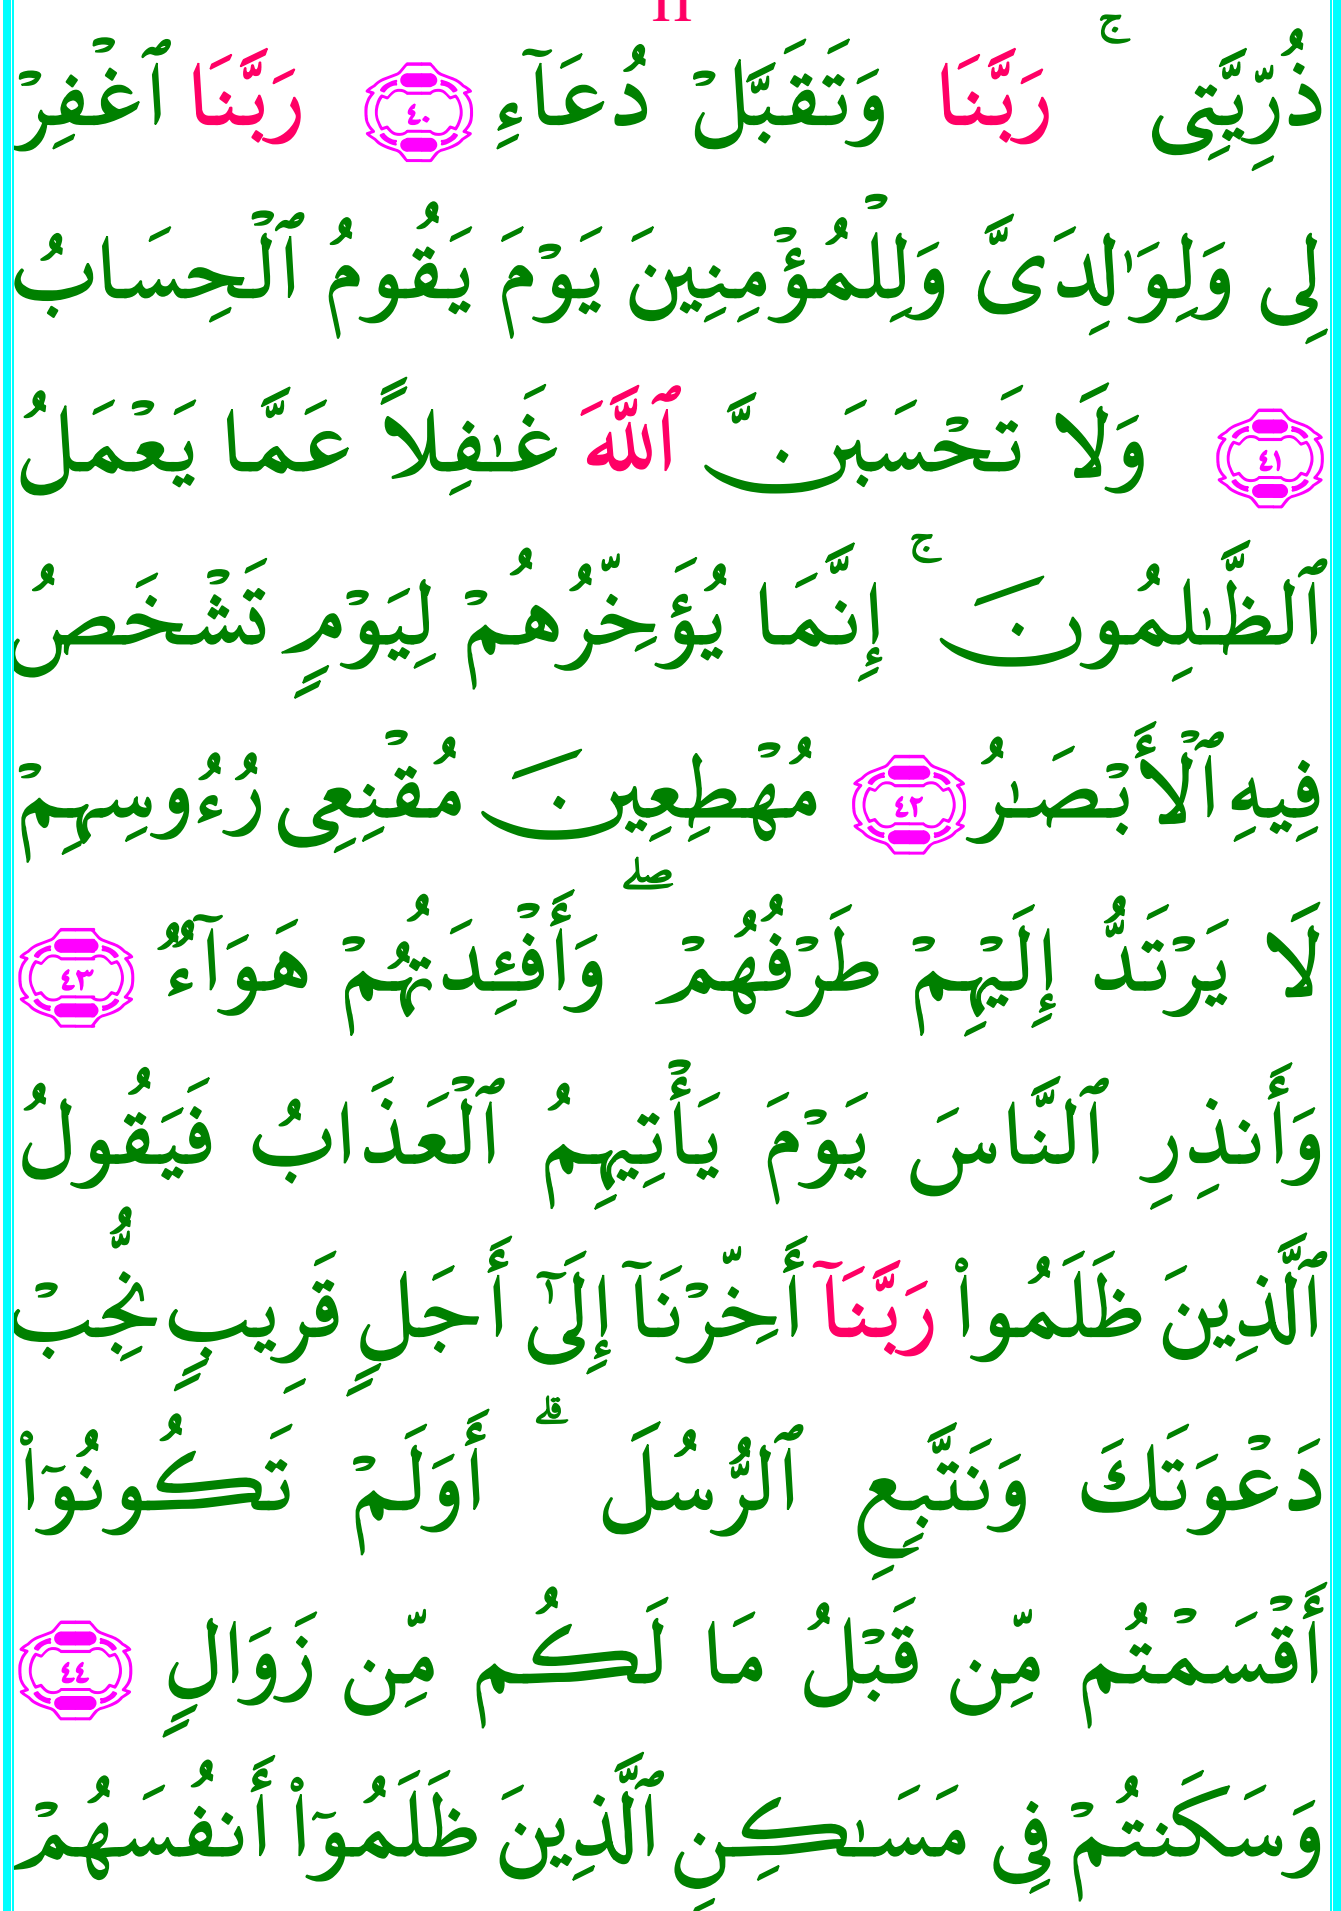 ذُرِّيَّتِى ۚ رَبَّنَا وَتَقَبَّلْ دُعَآءِ ٤٠ رَبَّنَا ٱغْفِرْ
لِى وَلِوَٰلِدَىَّ وَلِلْمُؤْمِنِينَ يَوْمَ يَقُومُ ٱلْحِسَابُ
٤١ وَلَا تَحْسَبَنَّ ٱللَّهَ غَـٰفِلاً عَمَّا يَعْمَلُ
ٱلظَّـٰلِمُونَ ۚ إِنَّمَا يُؤَخِّرُهُمْ لِيَوْمٍ تَشْخَصُ
فِيهِ ٱلْأَبْصَـٰرُ ٤٢ مُهْطِعِينَ مُقْنِعِى رُءُوسِهِمْ
لَا يَرْتَدُّ إِلَيْهِمْ طَرْفُهُمْ ۖ وَأَفْـِٔدَتُهُمْ هَوَآءٌ ٤٣
وَأَنذِرِ ٱلنَّاسَ يَوْمَ يَأْتِيهِمُ ٱلْعَذَابُ فَيَقُولُ
ٱلَّذِينَ ظَلَمُوا۟ رَبَّنَآ أَخِّرْنَآ إِلَىٰٓ أَجَلٍ قَرِيبٍ نُّجِبْ
دَعْوَتَكَ وَنَتَّبِعِ ٱلرُّسُلَ ۗ أَوَلَمْ تَكُونُوٓا۟
أَقْسَمْتُم مِّن قَبْلُ مَا لَكُم مِّن زَوَالٍ ٤٤
وَسَكَنتُمْ فِى مَسَـٰكِنِ ٱلَّذِينَ ظَلَمُوٓا۟ أَنفُسَهُمْ